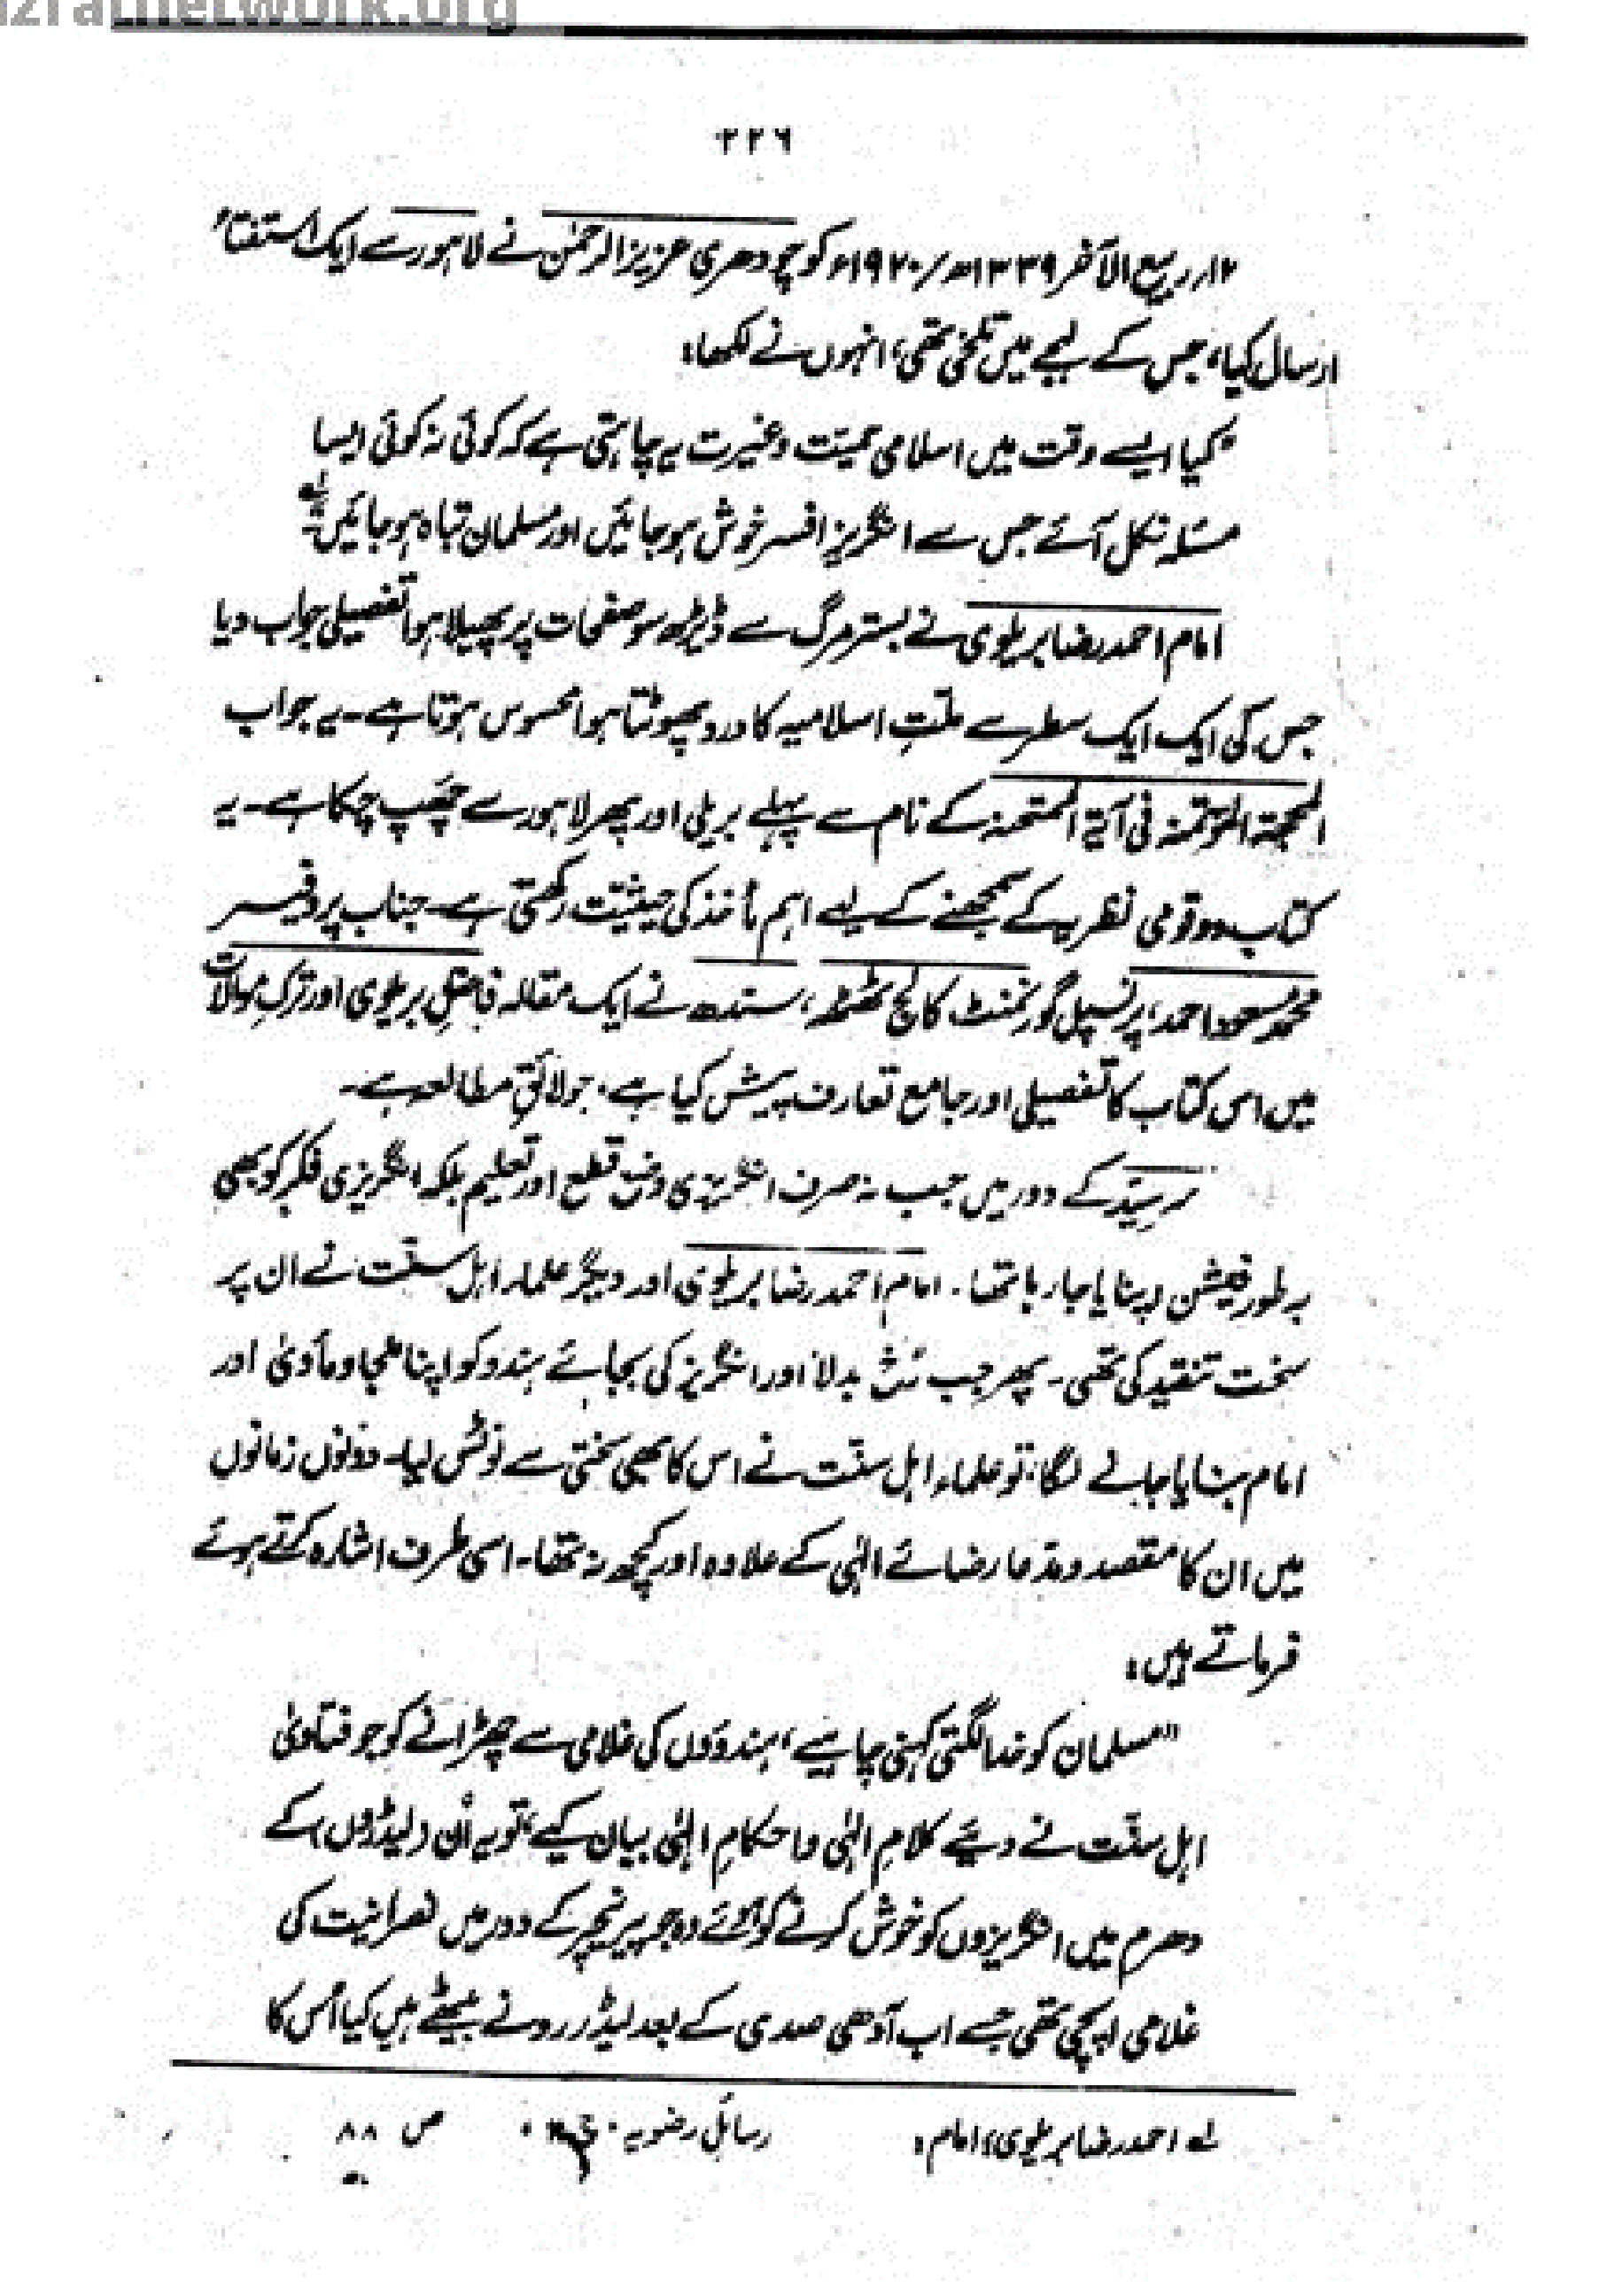 ۲۲۶
۱۲ ربیع الآخر ۱۳۳۹ھ/۱۹۲۰ء کو چودھری عزیز الرحمٰن نے لاہور سے ایک استفتاء
ارسال کیا، جس کے لہجے میں تلخی تھی، انہوں نے لکھا:
"کیا ایسے وقت میں اسلامی حمیت و غیرت یہ چاہتی ہے کہ کوئی نہ کوئی ایسا
مسئلہ نکل آئے جس سے انگریز افسر خوش ہو جائیں اور مسلمان تباہ ہو جائیں۔"لے
امام احمد رضا بریلوی نے بسترِ مرگ سے ڈیڑھ سو صفحات پر پھیلا ہوا تفصیلی جواب دیا
جس کی ایک ایک سطر سے ملتِ اسلامیہ کا درد پھوٹتا ہوا محسوس ہوتا ہے۔ یہ جواب
المحجۃ المؤتمنہ فی آیۃ الممتحنہ کے نام سے پہلے بریلی اور پھر لاہور سے چھپ چکا ہے۔ یہ
کتاب دو قومی نظریہ کے سمجھنے کے لیے اہم مأخذ کی حیثیت رکھتی ہے۔ جناب پروفیسر
محمد مسعود احمد، پرنسپل گورنمنٹ کالج ٹھٹھہ، سندھ نے ایک مقالہ فاضلِ بریلوی اور ترکِ موالات
میں اس کتاب کا تفصیلی اور جامع تعارف پیش کیا ہے، جو لائقِ مطالعہ ہے۔
سرسید کے دور میں جب نہ صرف انگریزی وضع قطع اور تعلیم بلکہ انگریزی فکر کو بھی
بطور فیشن اپنایا جا رہا تھا۔ امام احمد رضا بریلوی اور دیگر علماء اہل سنت نے ان پر
سخت تنقید کی تھی۔ پھر جب رُخ بدلا اور انگریز کی بجائے ہندو کو اپنا ملجا و مأویٰ اور
امام بنایا جانے لگا، تو علماء اہل سنت نے اس کا بھی سختی سے نوٹس لیا۔ دونوں زمانوں
میں ان کا مقصد و مدعا رضائے الٰہی کے علاوہ اور کچھ نہ تھا۔ اسی طرف اشارہ کرتے ہوئے
فرماتے ہیں:
"مسلمان کو خدا لگتی کہنی چاہیے، ہندوؤں کی غلامی سے چھڑانے کو جو فتاویٰ
اہل سنت نے دیئے کلامِ الٰہی و احکامِ الٰہی بیان کیے، تو یہ اُن (لیڈروں) کے
دھرم میں انگریزوں کو خوش کرنے کو ہوئے وہ جو پیر نیچر کے دور میں نصرانیت کی
غلامی اپچی تھی جسے اب آدھی صدی کے بعد لیڈر رونے بیٹھے ہیں کیا اُس کا
لے احمد رضا بریلوی، امام: رسائل رضویہ ج ۲، ص ۸۸